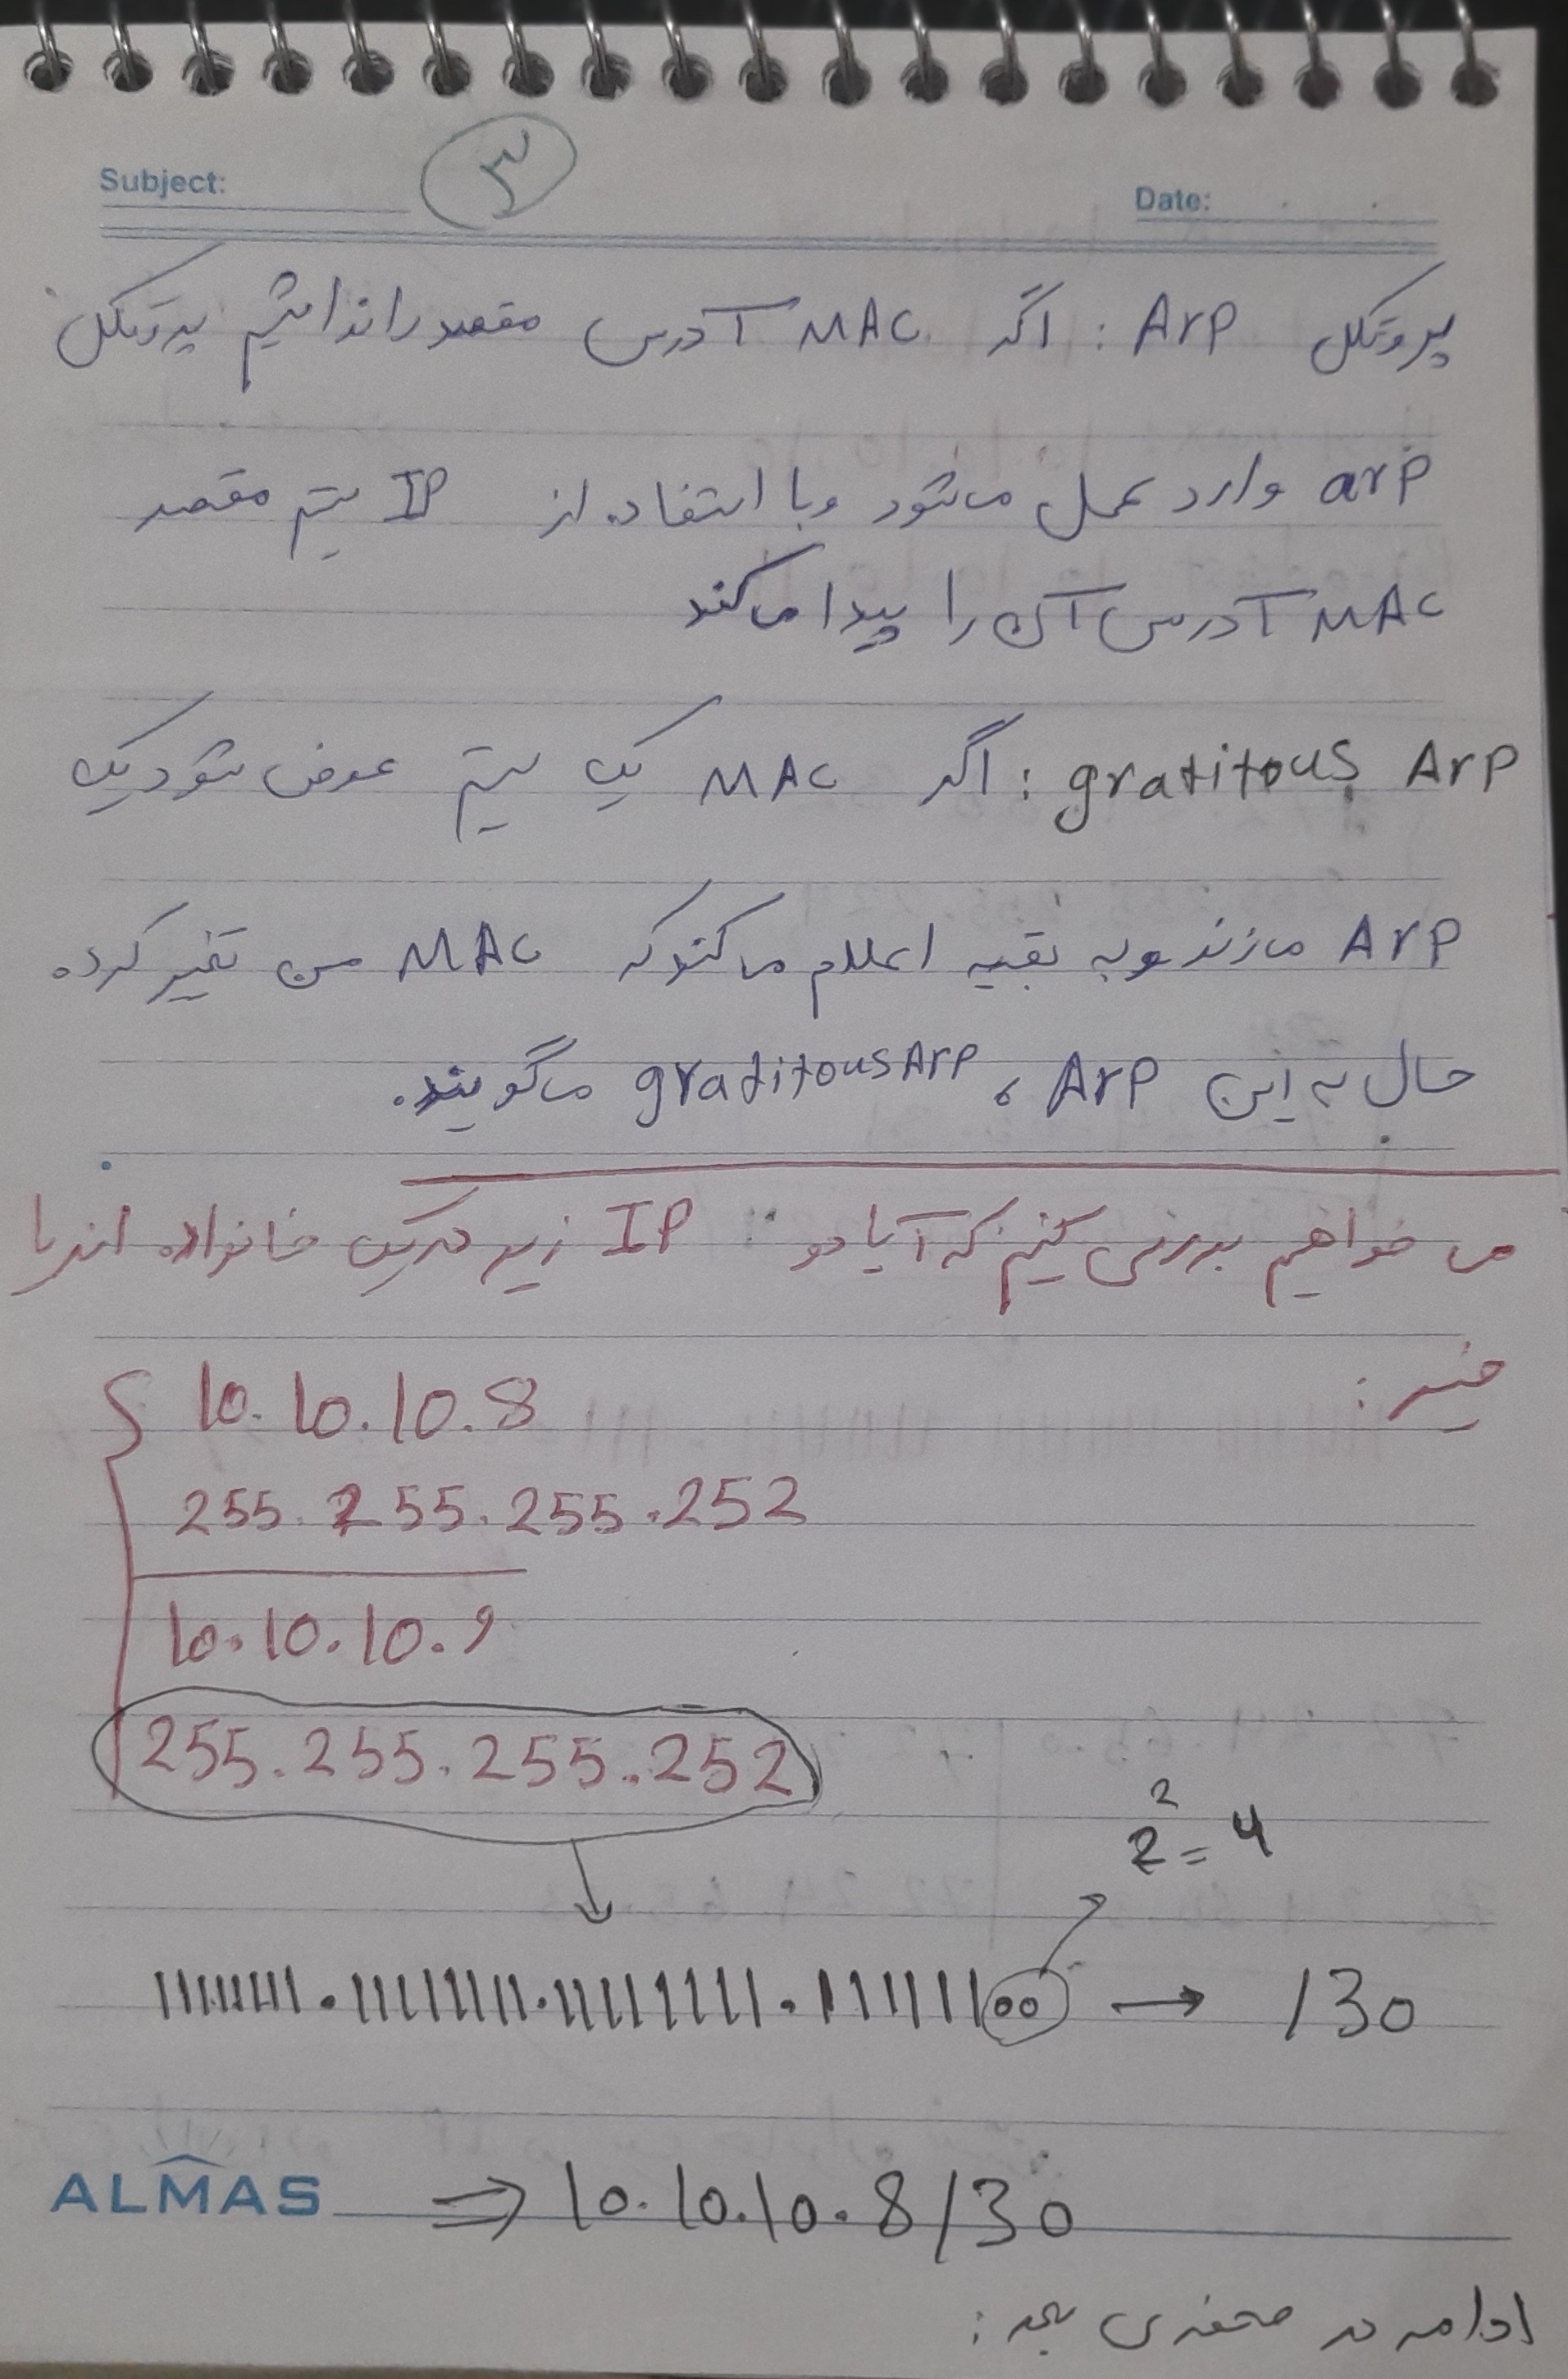 Subject:
۳
Date:
پروتکل Arp : اگر MAC آدرس مقصد را نداشتیم پروتکل
arp وارد عمل می‌شود و با استفاده از IP سیستم مقصد
MAC آدرس آن را پیدا می‌کند
gratitous Arp : اگر MAC یک سیستم عوض شود یک
Arp می‌زند و به بقیه اعلام می‌کند که MAC من تغییر کرده
حال به این Arp ، gratitous Arp می‌گویند.
می خواهیم بررسی کنیم که آیا دو IP زیر در یک خانواده اند یا
خیر :
10.10.10.8
255.255.255.252
10.10.10.9
255.255.255.252
2² = 4
11111111.11111111.11111111.11111100 → /30
ALMAS
⇒ 10.10.10.8/30
ادامه در صفحه‌ی بعد :